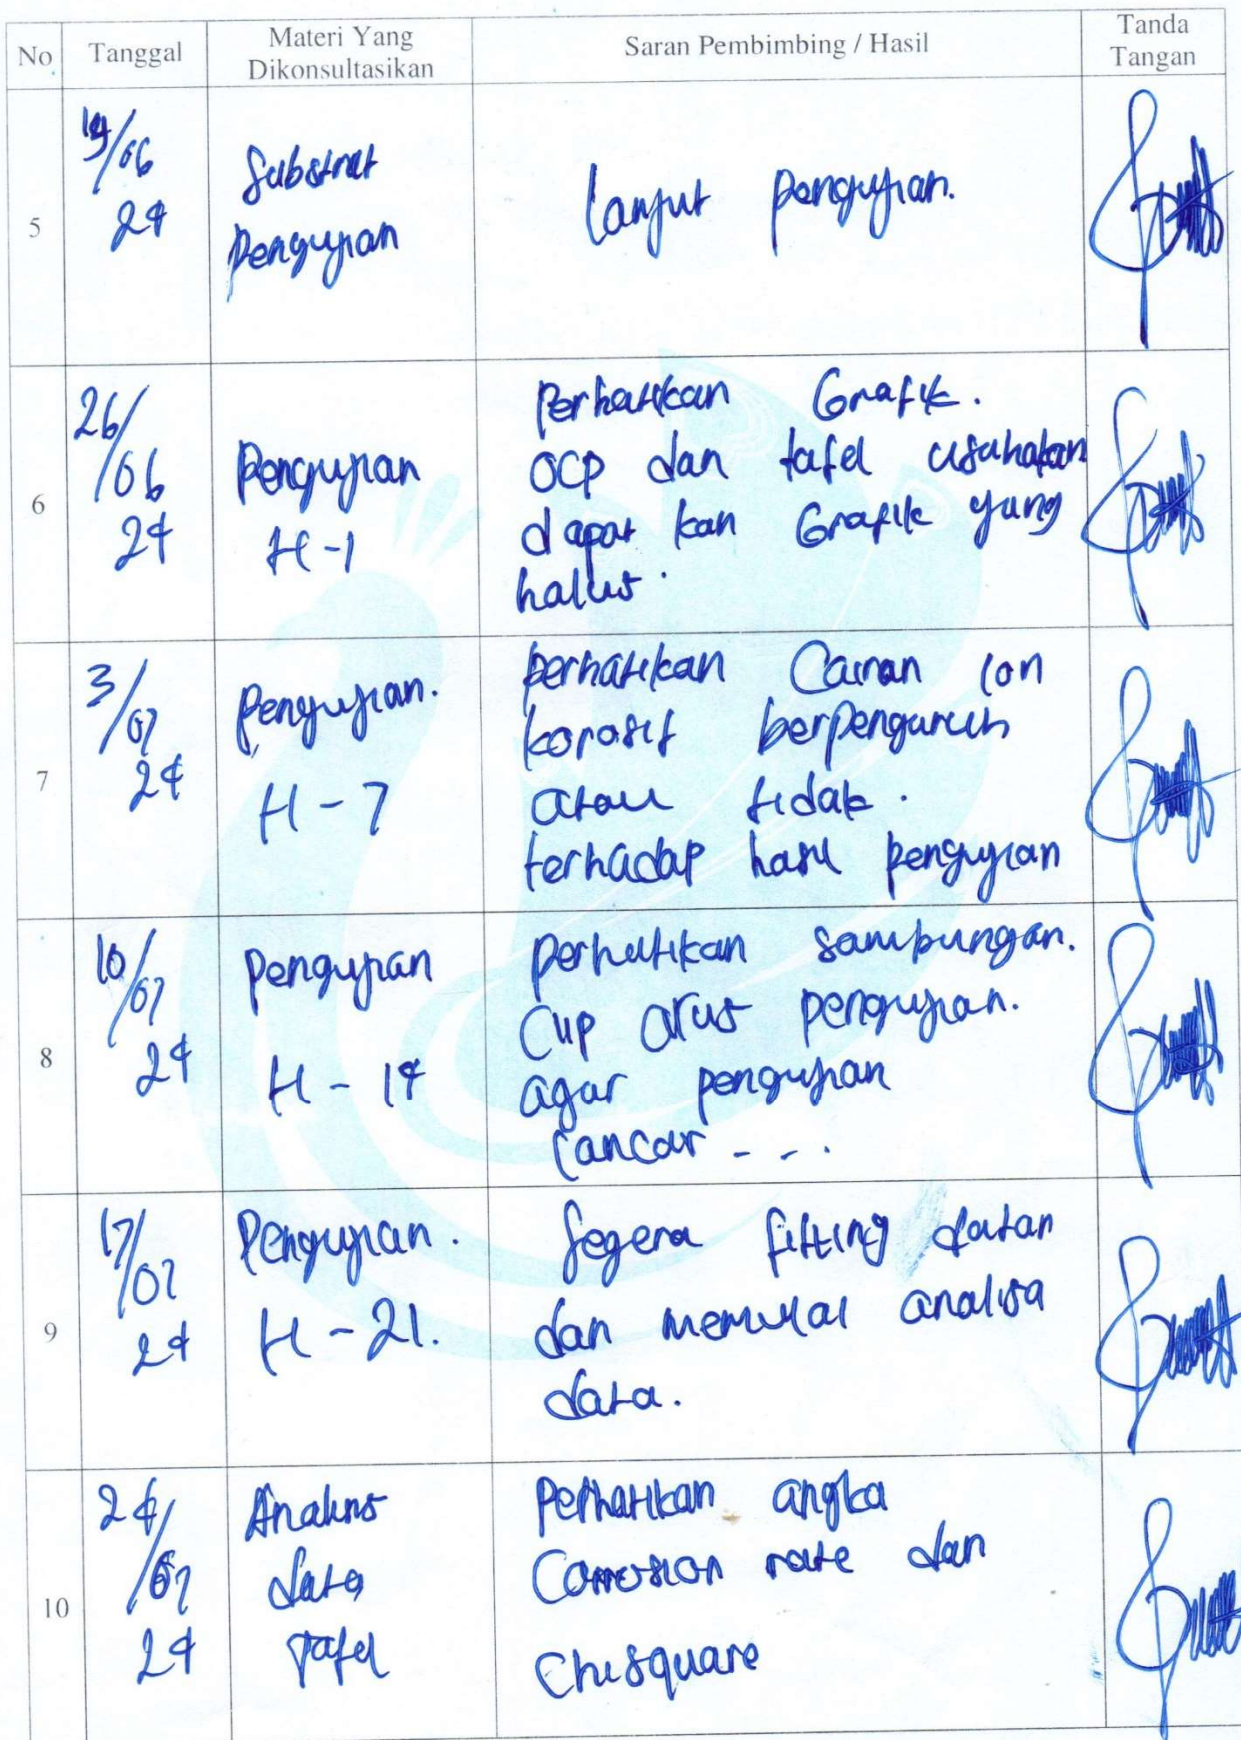 No Tanggal Materi Yang Dikonsultasikan Saran Pembimbing / Hasil Tanda Tangan
5
19/06
24
Substrat
Pengujian
Lanjut pengujian.
6
26/
/06
24
Pengujian
H-1
Perhatikan Grafik.
OCP dan tafel usahakan
dapat kan Grafik yang
halus.
7
3/07
24
Pengujian.
H-7
perhatikan Cairan ion
korosif berpengaruh
atau tidak.
terhadap hasil pengujian
8
10/07
24
Pengujian
H-14
perhatikan sambungan.
Cup arus pengujian.
agar pengujian
lancar - - .
9
17/07
24
Pengujian.
H-21.
Segera fitting datan
dan memulai analisa
data.
10
24/
/07
24
Analisis
data
Tafel
Perhatikan angka
Corrosion rate dan
Chisquare